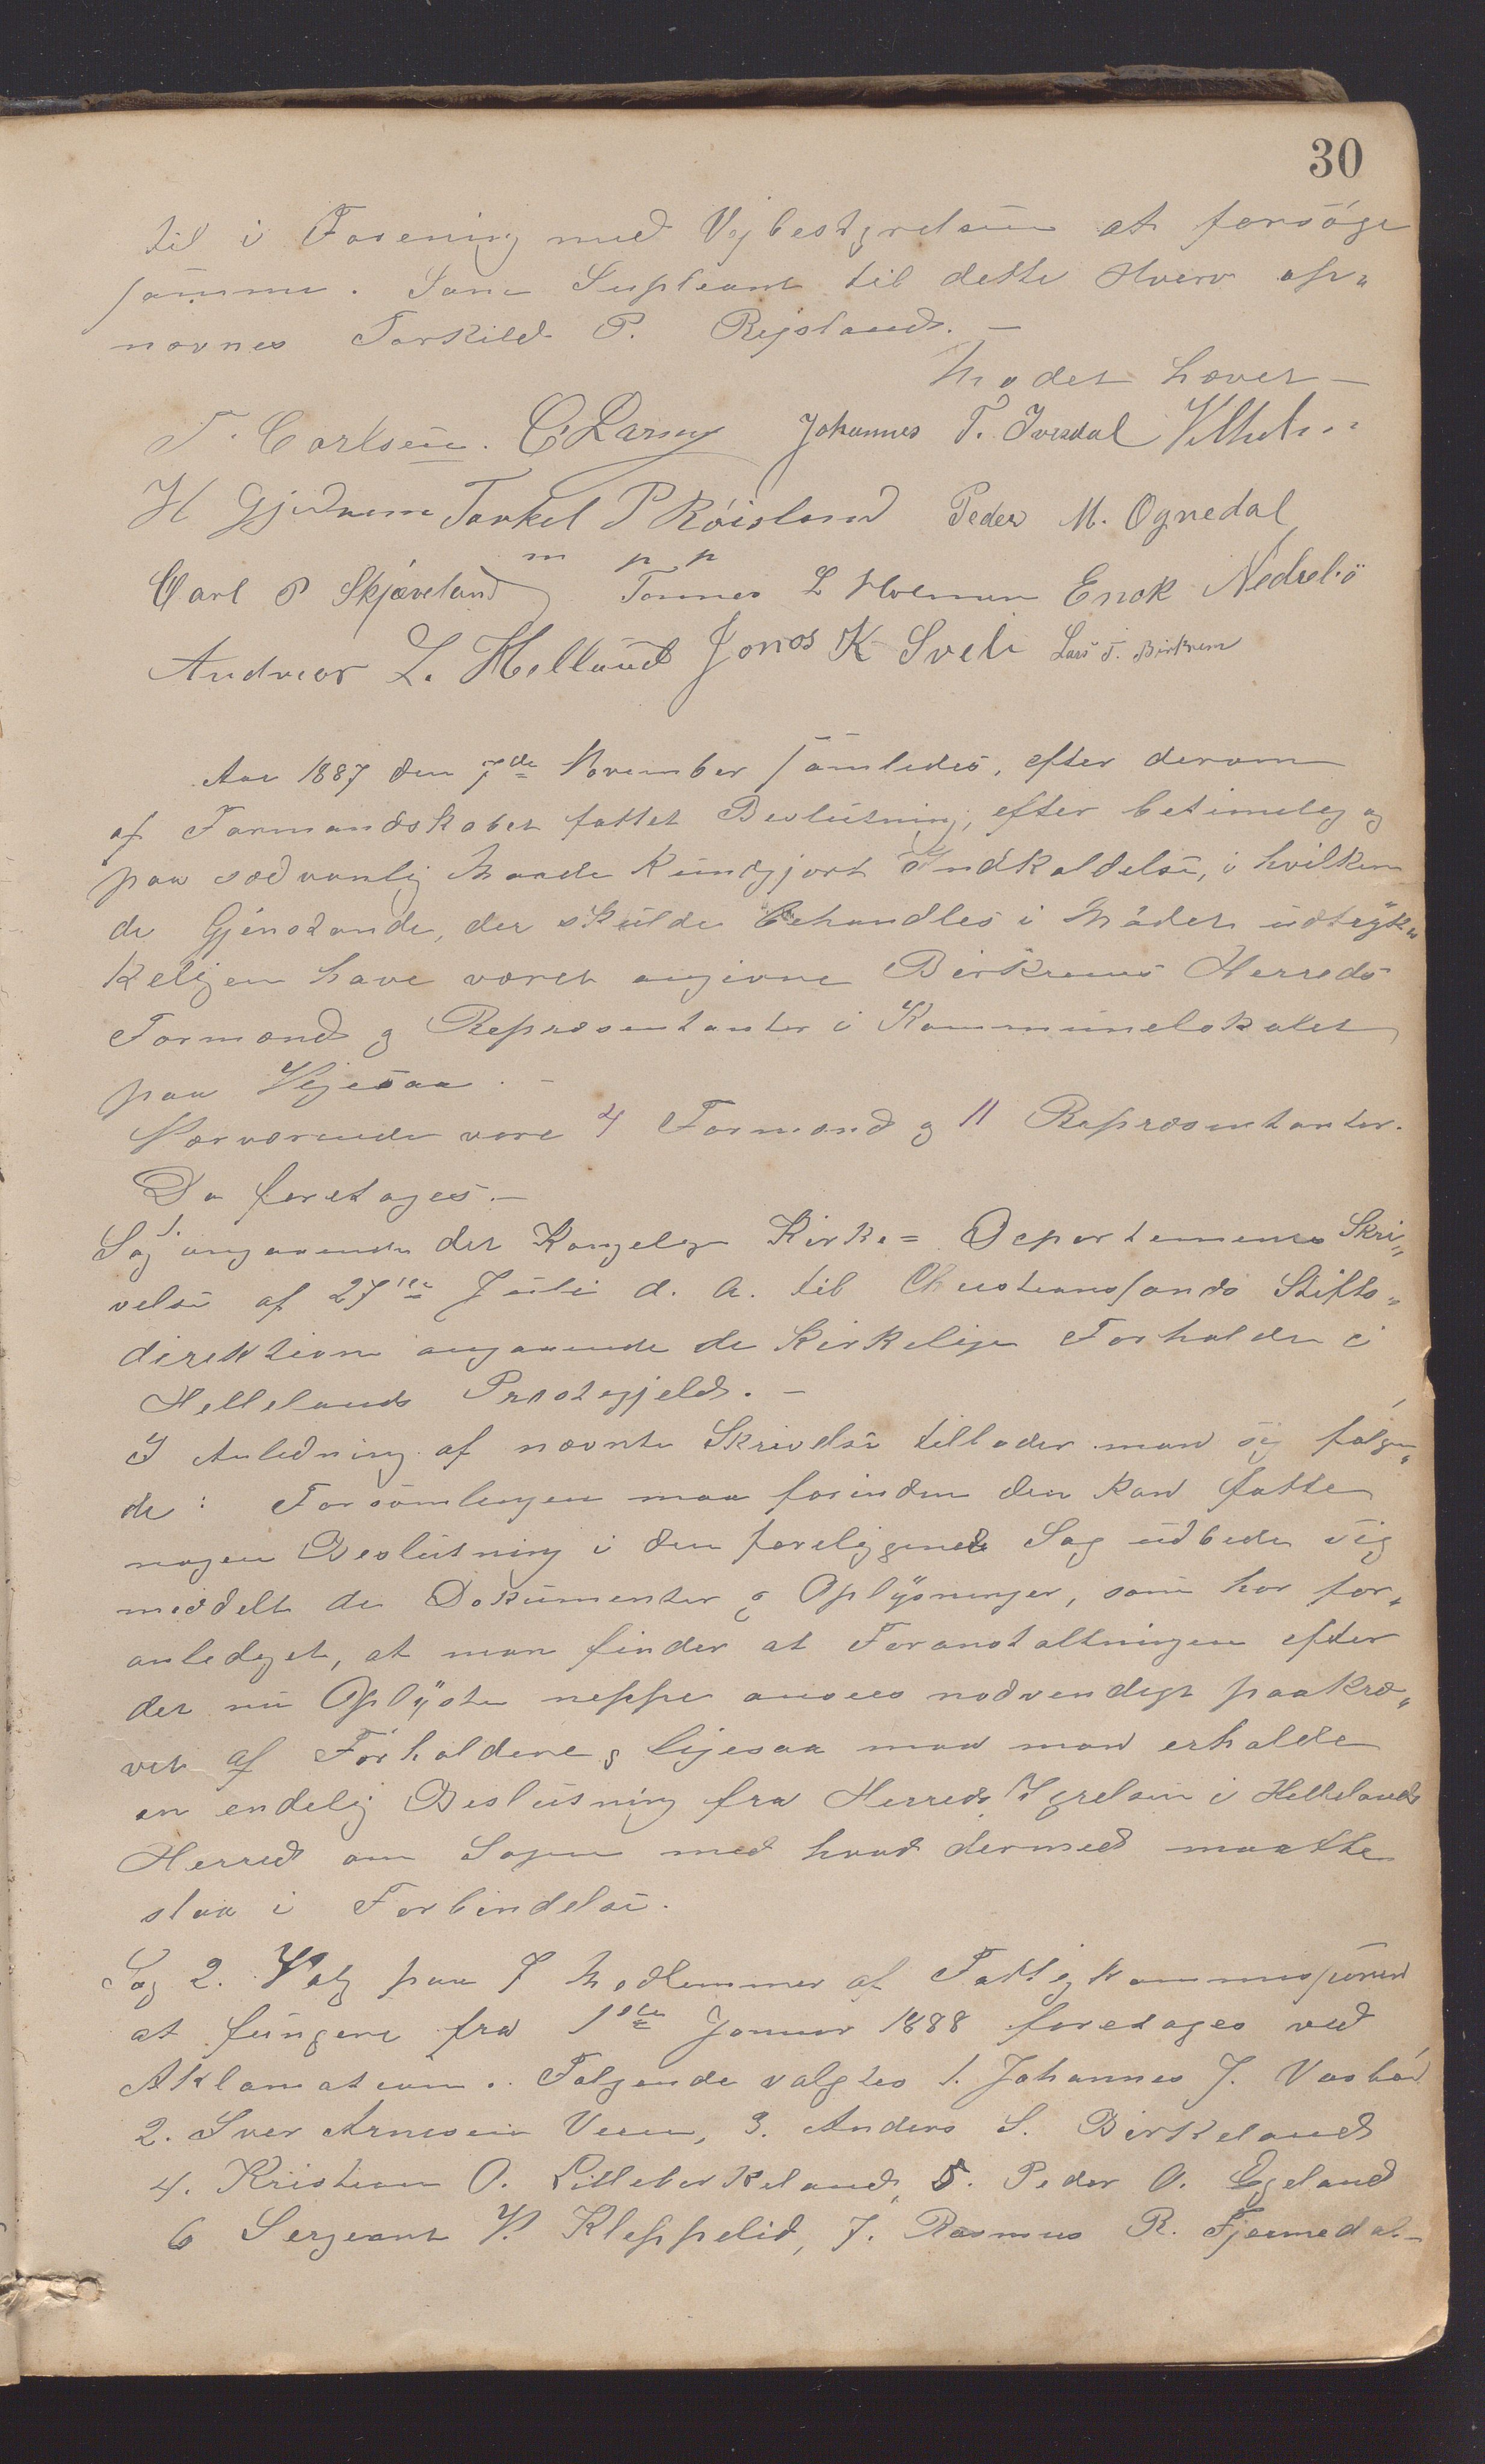 30
til i Forening med Vejbestyrelsen at forsøge
samme. Som Supleant til dette Hverv op„
nævnes Torkild P. Røjsland. —
Mødet hævet —
T. Carlsen. C Larsen Johannes T. Ivesdal Vilhelm
H Gjedrem Torkel P Røisland Peder M. Ognedal
m p p
Carl P Skjæveland Tønnes L Holmen Enok Nedrebø
Andreas L. Helland Jonas K Sveli Lars T. Birkrem
Aar 1887 den 7de November samledes, efter derom
af Formandskabet fattet Beslutning, efter betimelig og
paa sædvanlig Maade kundgjort Indkaldelse, i hvilken
de Gjenstande, der skulde behandles i Mødet udtryk„
keligen have været angivne Birkrems Herreds
Formænd og Repræsentanter i Kommunelokalet
paa Vigesaa. —
Nærværende vare 4 Formænd og 11 Repræsentanter.
Da foretages. —
Sag 1 angaaende det Kongelige Kirke= Departements Skri„
velse af 27de Juli d. A. til Christianssands Stifts„
direktion angaaende de kirkelige Forholde i
Hellelands Præstegjeld. —
I Anledning af nævnte Skrivelse tillader man sig følgen„
de: Forsamlingen maa forinden den kan fatte
nogen Beslutning i den foreliggende Sag udbede sig
meddelt de Dokumenter og Oplysninger, som har for„
anlediget, at man finder at Foranstaltningen efter
det nu Oplyste neppe ansees nødvendigt paakræ„
vet af Forholdene, ligesaa maa man erholde
en endelig Beslutning fra Herredsstyrelsen i Hellelands
Herred om Sagen med hvad dermed maatte
staa i Forbindelse.
Sag 2. Valg paa 7 Medlemmer af Fattigkommissionen
at fungere fra 1ste Januar 1888 foretages ved
Aklamation. Følgende valgtes 1. Johannes J. Vasbø
2. Iver Arnesen Veen, 3. Anders S. Birkeland
4. Kristian O. Lilleberkeland, 5. Peder O. Egeland
6 Sergeant V. Kleppelid, 7. Rasmus R. Fjermedal. —